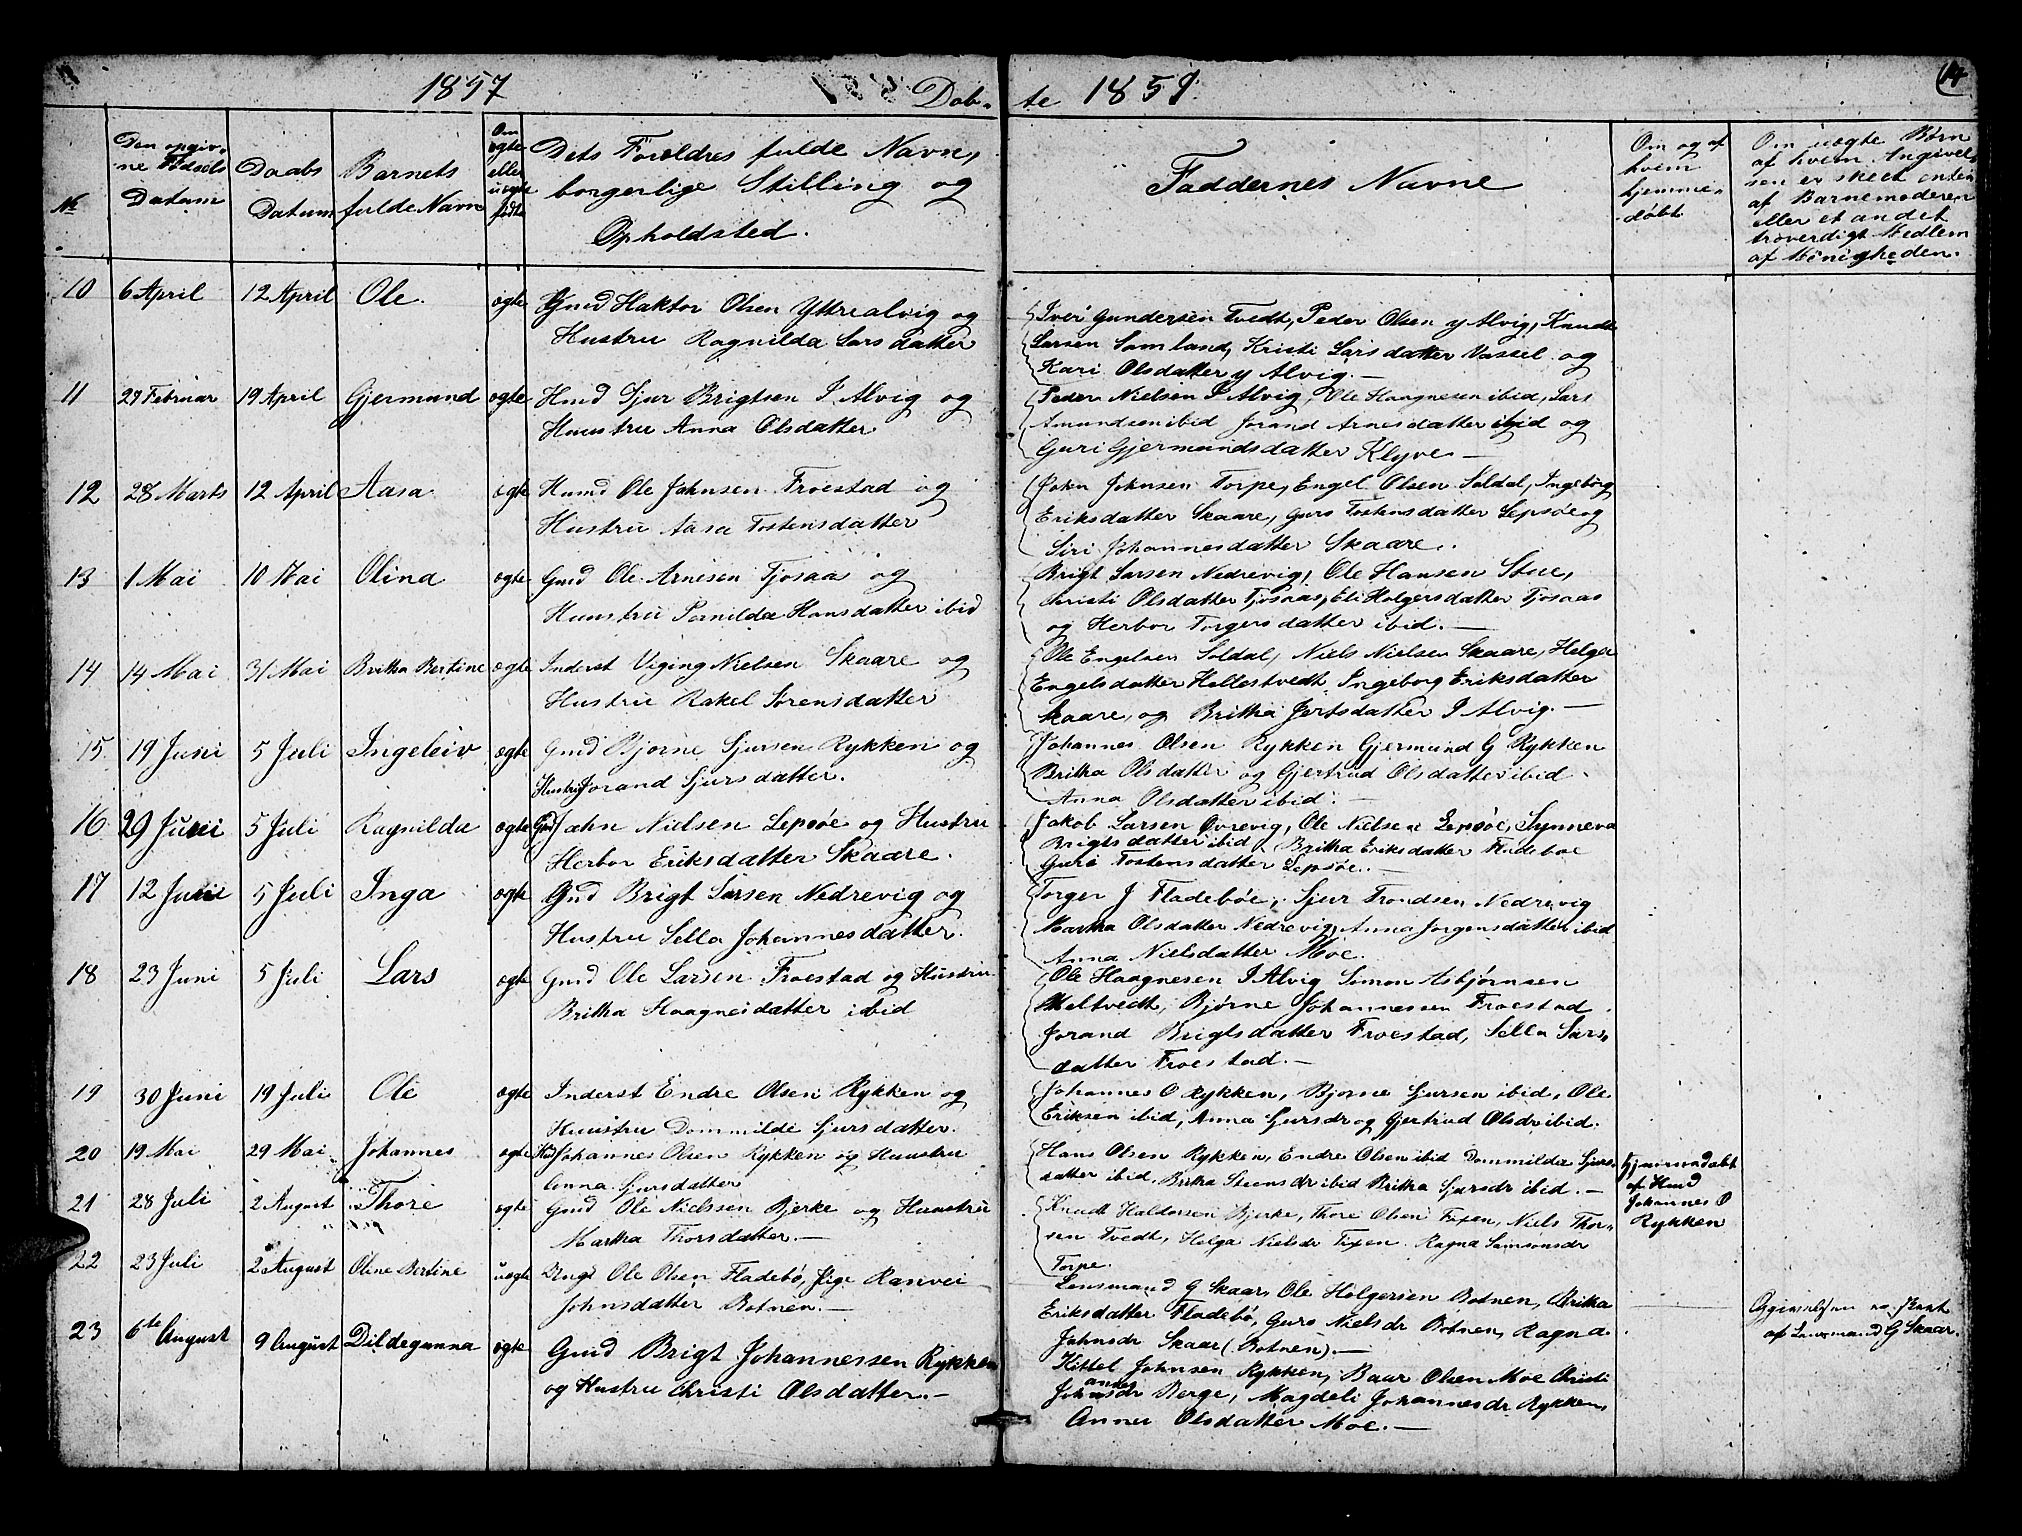 1857
Døb-
te 1857
14
No
Den opgiv-
ne Fødsels
Datum
Daabs
Datum
Barnets
fulde Navn
Om
ægte
eller
uægte
fødte
Dets Forældres fulde Navne,
borgerlige Stilling og
Opholdsted.
Faddernes Navne
Om og af
hvem
hjemme-
døbt
Om uægte Børn
af hvem Angivel-
sen er skeet enten
af Barnemoderen
eller et andet
troverdigt Medlem
af Menigheden.
10 6 April 12 April Ole. ægte Gmd Haktor Olsen Yttrealvig og
Hustru Ragnilda Larsdatter
Iver Gundersen Tvedt, Peder Olsen y Alvig, Knudt
Larsen Samland, Kristi Larsdatter Vassel og
Kari Olsdatter y Alvig.—
11 29 Februar 19 April Gjermund ægte Hmd Sjur Brigtsen I Alvig og
Huustru Anna Olsdatter
Peder Nielsen I Alvig, Ole Haagnesen ibid, Lars
Amundsen ibid Jorand Arnesdatter ibid og
Guri Gjermundsdatter Klyve—
12 28 Marts 12 April Aasa ægte Huumd Ole Johnsen Froestad og
Hustru Aasa Tostensdatter
John Johnsen Torpe, Engel Olsen Soldal, Ingeborg
Eriksdatter Skaare, Guro Tostensdatter Lepsøe og
Siri Johannesdatter Skaare.
13 1 Mai 10 Mai Olina ægte Gmd Ole Arnesen Tjosaas og
Huustru Pernilda Hansdatter ibid
Brigt Larsen Nedrevig, Ole Hansen Stue,
Christi Olsdatter Tjosaas, Eli Holgersdatter Tjosaas
og Herbor Torgersdatter ibid.—
14 14 Mai 31 Mai Britha Bertine ægte Inderst Viging Nielsen Skaare og
Hustru Rakel Sørensdatter
Ole Engelsen Soldal, Niels Nielsen Skaare, Helga
Engelsdatter Hellestvedt Ingeborg Eriksdatter
Skaare, og Britha Jertsdatter I Alvig.—
15 19 Juni 5 Juli Ingeleiv ægte Gmd Bjorne Sjursen Rykken og
Hustru Jorand Sjursdatter.
Johannes Olsen Rykken Gjermund G Rykken
Britha Olsdatter og Gjertrud Olsdatter ibid
Anna Olsdatter ibid.—
16 29 Juni 5 Juli Ragnilda ægte Gmd John Nielsen Lepsøe og Hustru
Herbor Eriksdatter Skaare.
Jakob Larsen Øvrevig, Ole Nielsen Lepsøe, Synneva
Brigtsdatter ibid, Britha Eriksdatter Fladeboe
Guri Tostensdatter Lepsøe.—
17 12 Juni 5 Juli Inga ægte Gmd Brigt Larsen Nedrevig og
Hustru Sella Johannesdatter.
Torger J Fladebøe, Sjur Trondsen Nedrevig
Martha Olsdatter Nedrevig, Anna Jorgensdatter ibid
Anna Nielsdatter Moe.
18 23 Juni 5 Juli Lars ægte Gmd Ole Larsen Froestad og Hustru
Britha Haagnesdatter ibid
Ole Haagnesen I Alvig Simon Asbjørnsen
Meltvedt, Bjørne Johannessen Froestad
Jorand Brigtsdatter Froestad, Sella Lars-
datter Froestad.—
19 30 Juni 19 Juli Ole ægte Inderst Endre Olsen Rykken og
Huustru Dommilde Sjursdatter.
Johannes O Rykken, Bjorne Sjursen ibid, Ole
Eriksen ibid, Anna Sjursdr og Gjertrud Olsdr ibid.
20 19 Mai 29 Mai Johannes ægte Hmd Johannes Olsen Rykken og Huustru
Anna Sjursdatter
Hans Olsen Rykken, Endre Olsen ibid Dommilda Sjurs-
datter ibid, Britha Steensdr ibid Britha Sjursdr ibid.—
Hjemmedøbt
af Hmd
Johannes O
Rykken
21 28 Juli 2 August Thore ægte Gmd Ole Nielssen Bjerke og Huustru
Martha Thorsdatter.—
Knudt Haldorsen Bjerke, Thore Olsen Fixen, Niels Thor-
sen Tvedt, Helga Nielsdr Fixen Ragna Samsonsdr
Torpe.
22 23 Juli 2 August Oline Bertine uægte Ungk Ole Olsen Fladebø, Pige Ranvei
Johnsdatter Botnen.—
Lensmand G Skaar, Ole Holgersen Botnen, Britha
Eriksdatter Fladebø, Guro Nielsdr Botnen, Ragna
Johnsdr Skaar (Botnen).—
af Lensmand G Skaar.
23 6te August 9 August Dildegunna ægte Gmd Brigt Johannessen Rykken
og Hustru Christi Olsdatter.—
Kittel Johnsen Rykken, Baar Olsen Moe Christi
Johannesdr Berge, Magdeli Johannesdr Rykken,
Anna Olsdatter Moe.—